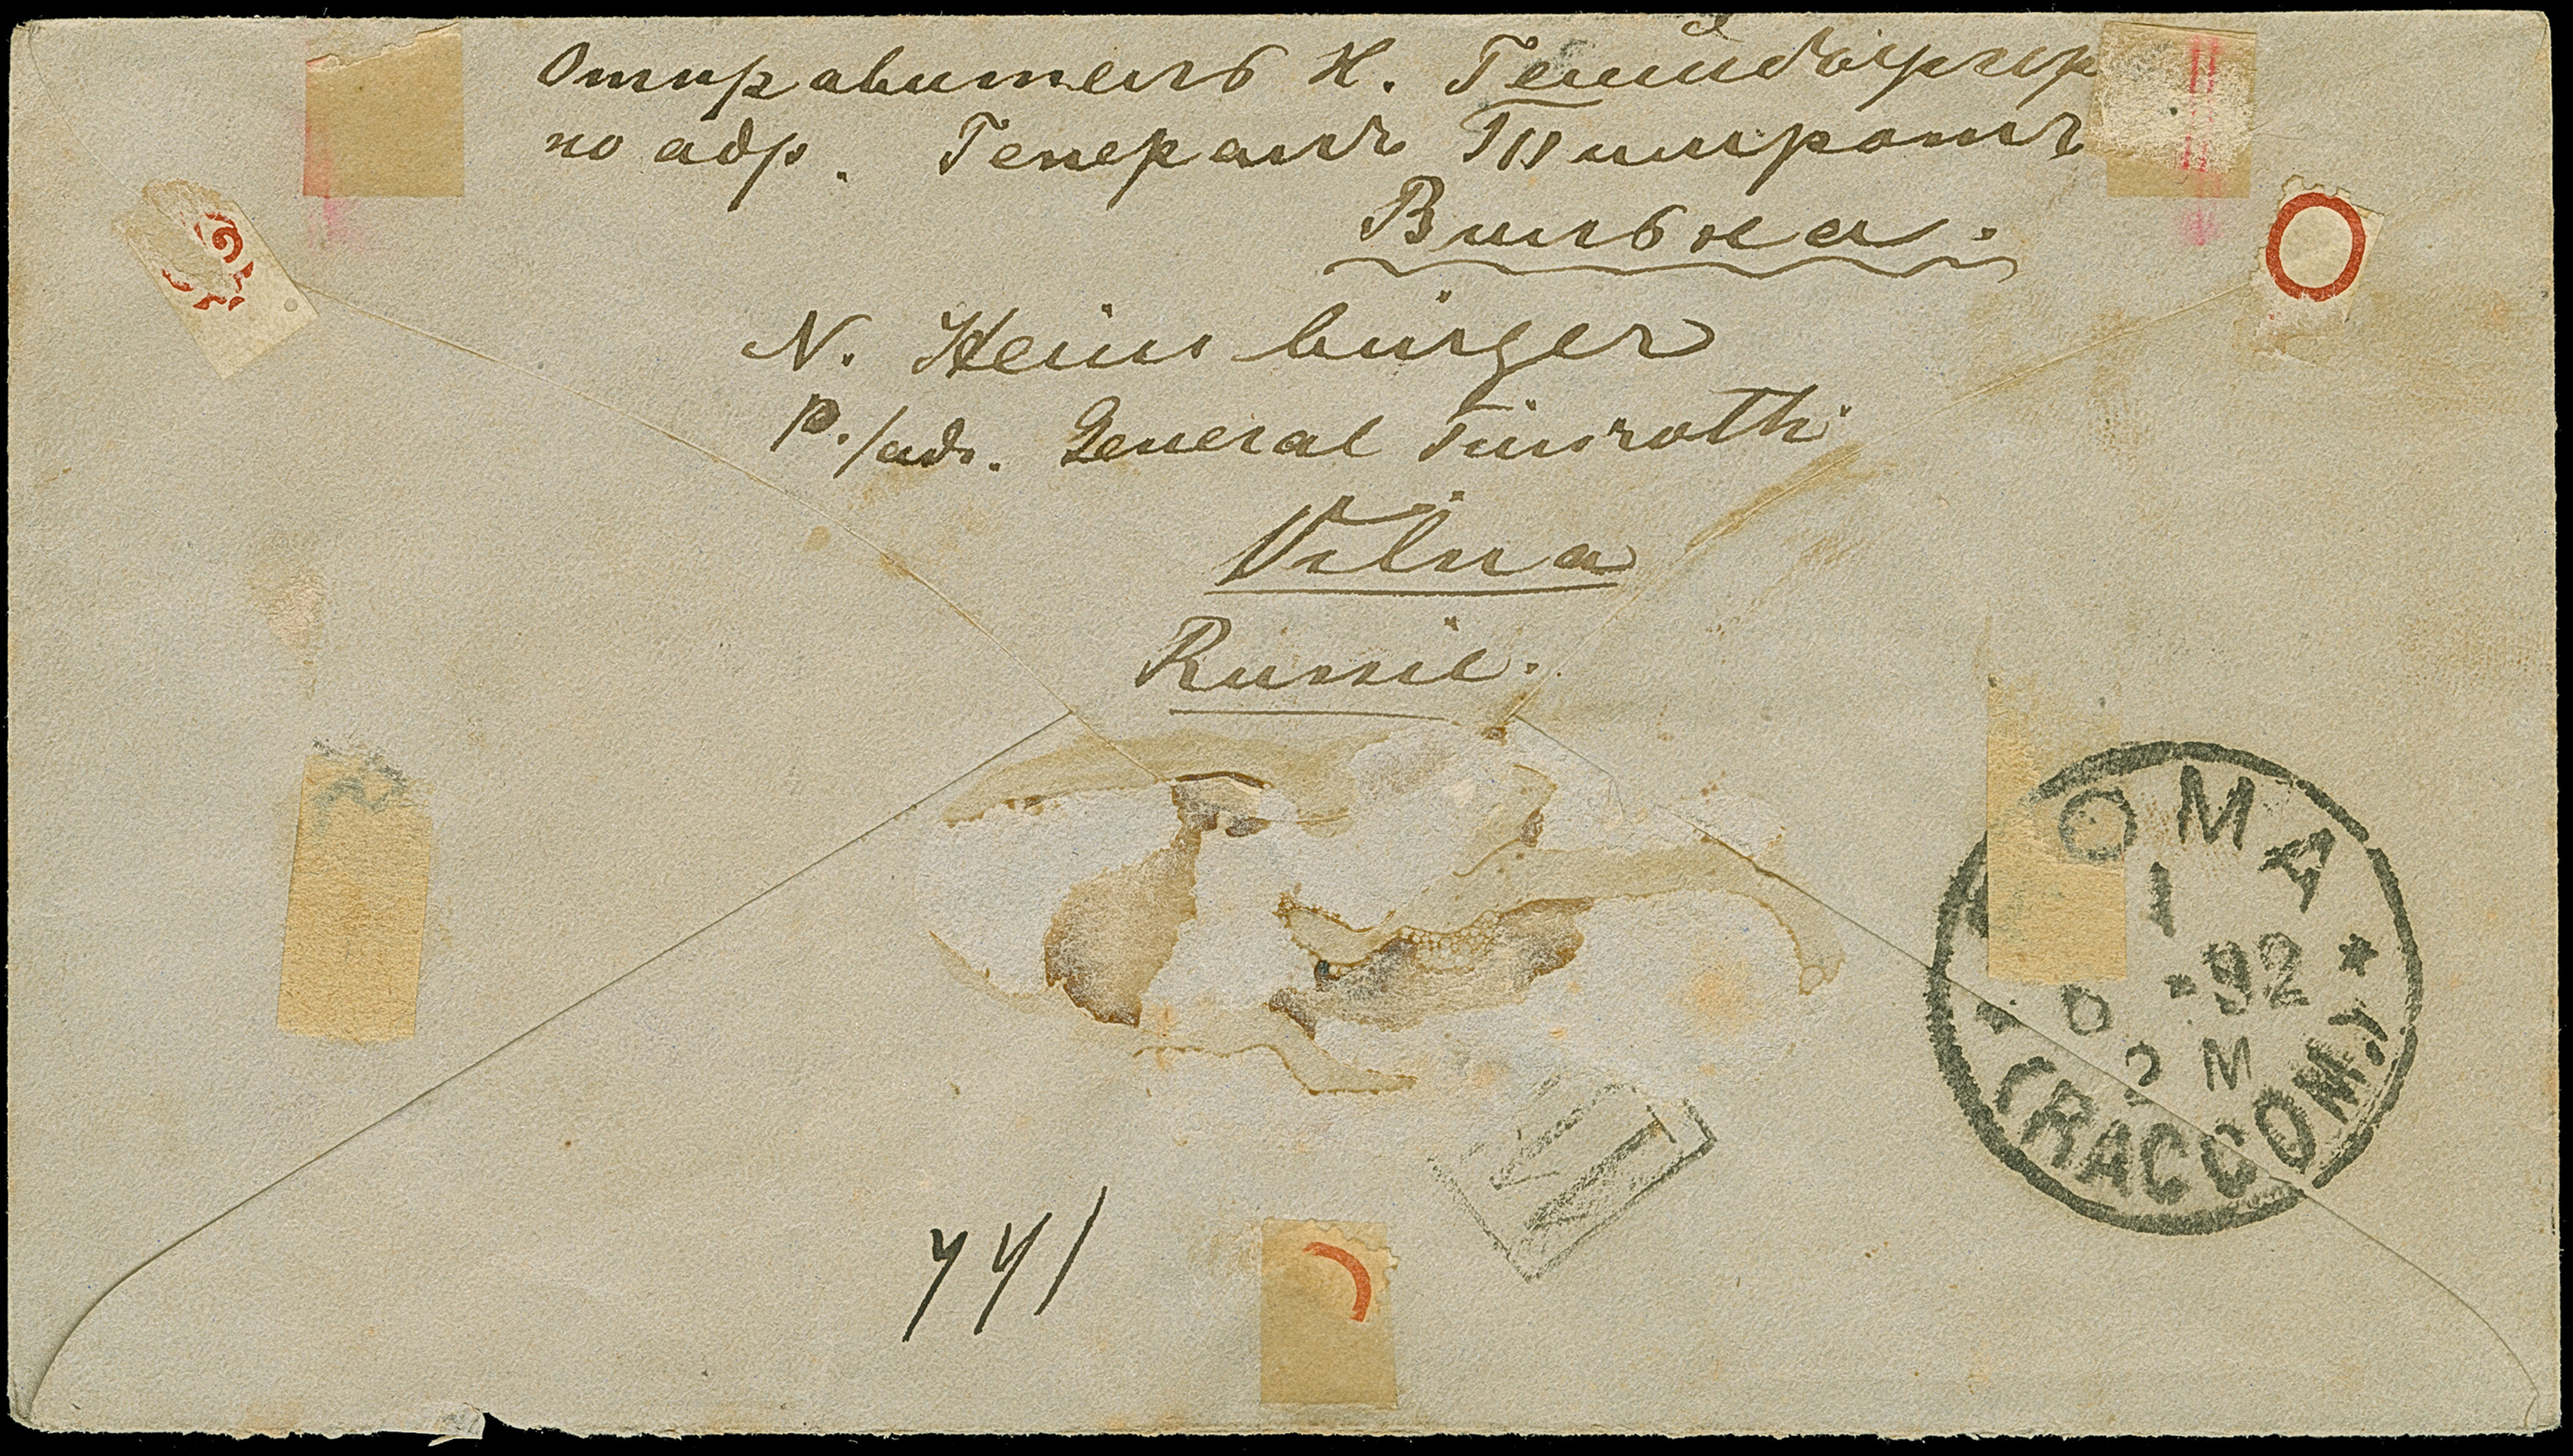 Отправитель Н. Геинбюргер
по адр. Генералъ Тимротъ
Вильна.
N. Heinbürger
P./ad. General Timroth
Vilna
Russie.
ROMA
1
6 -92
2 M
(RACCOM.)
741